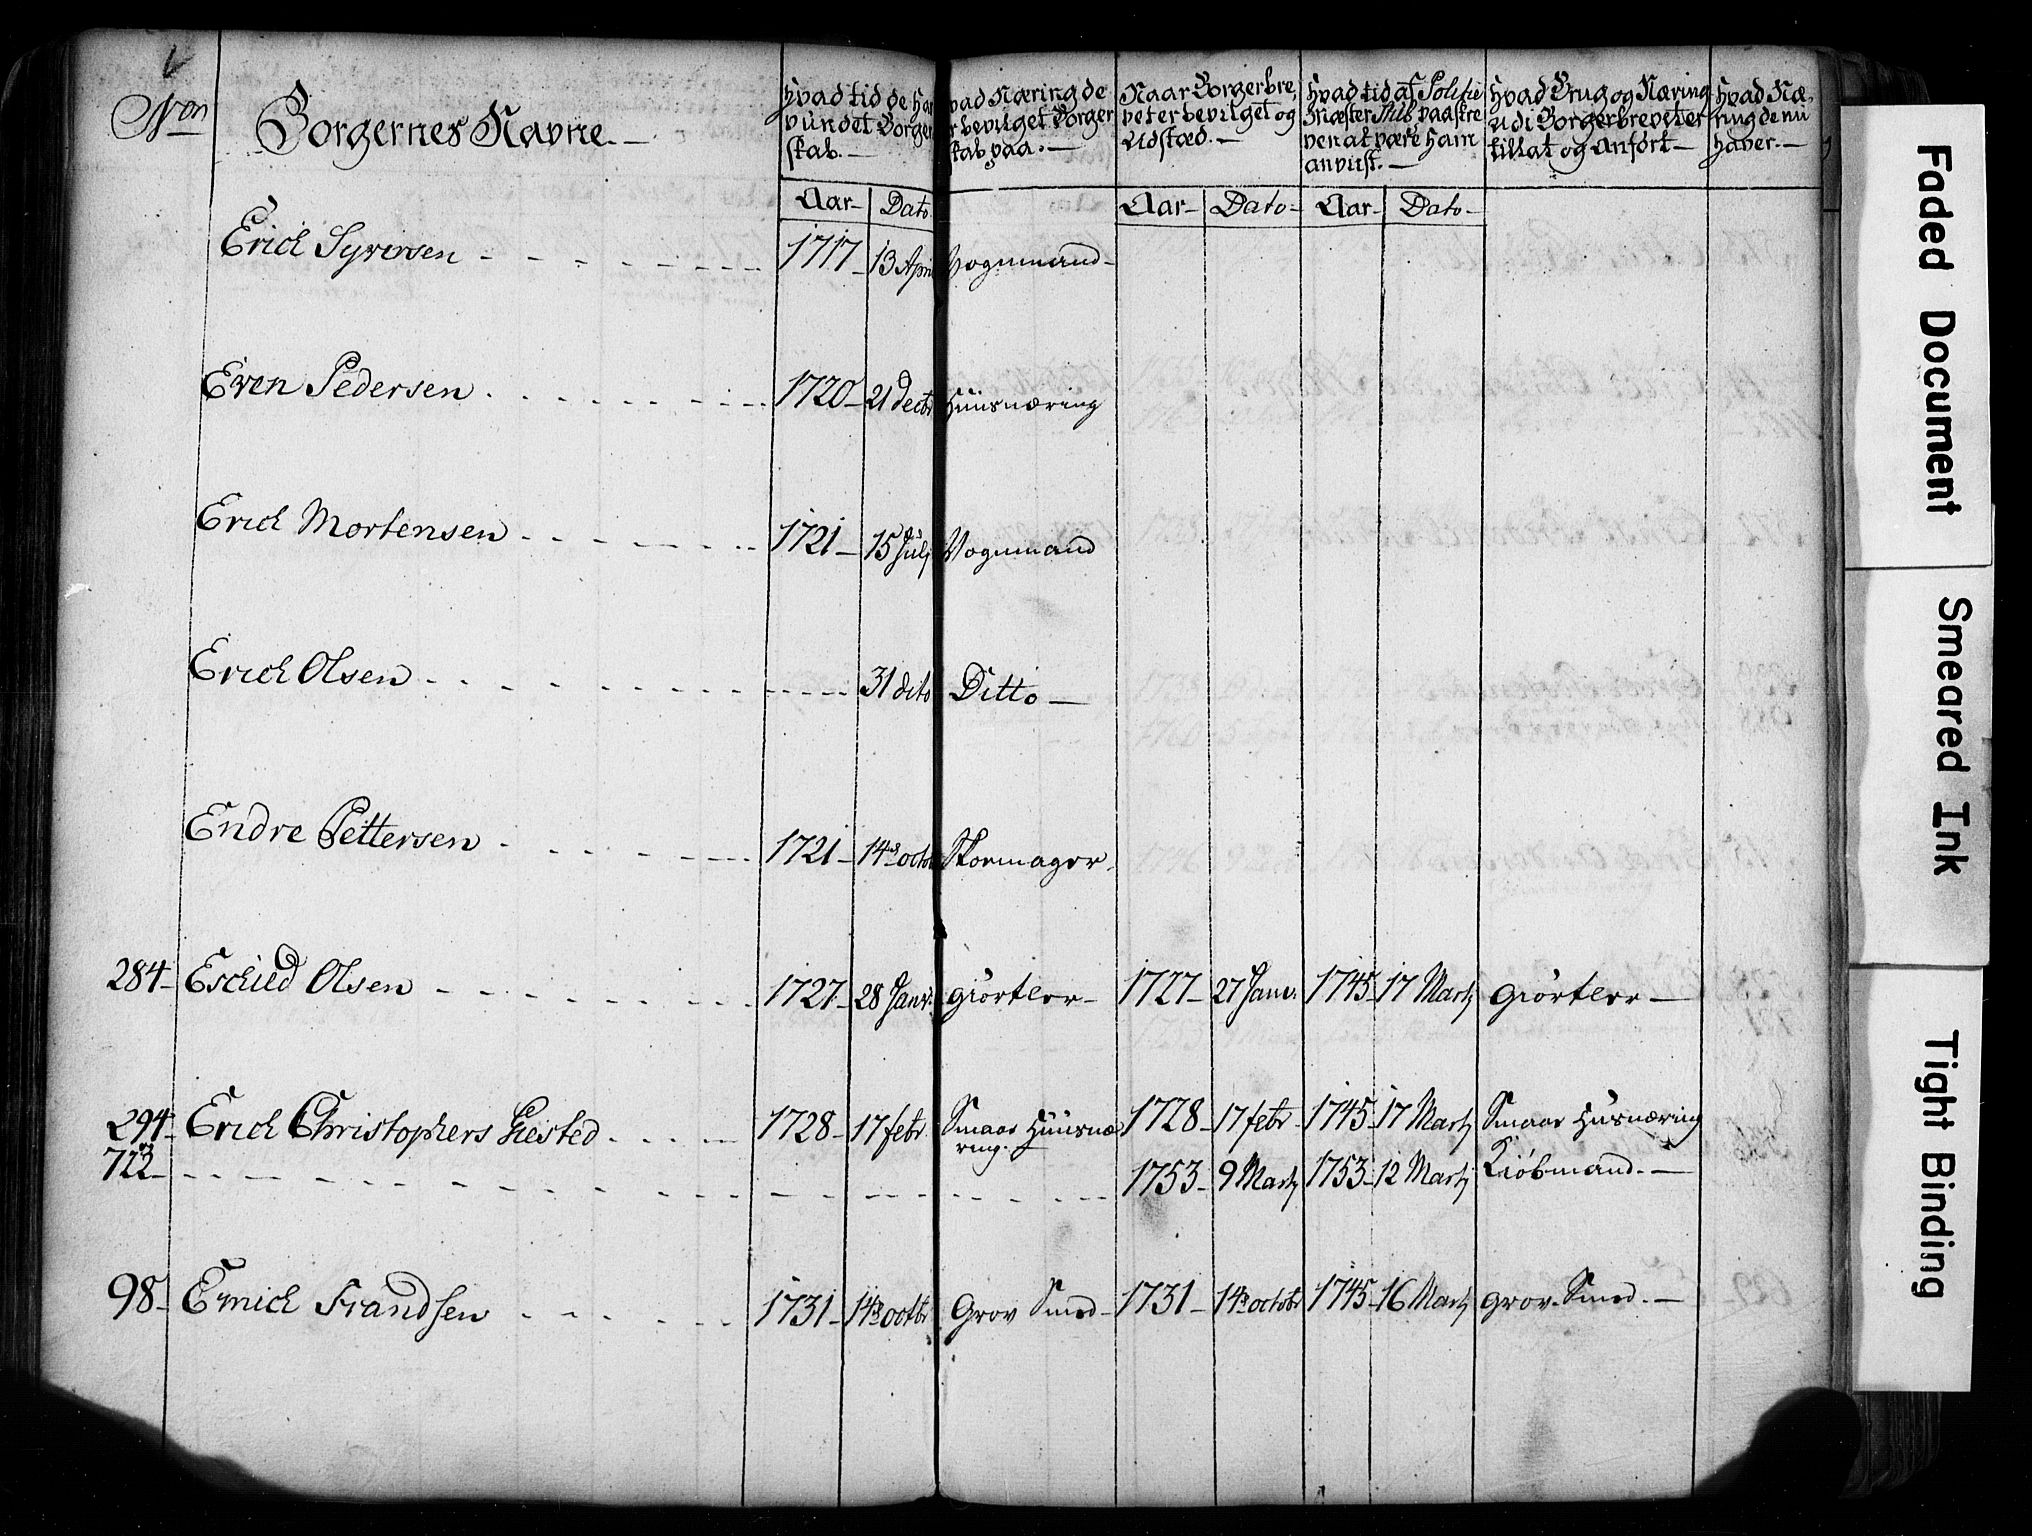 Non
Borgernes Navne.
hvad tid de har
vundet Borger
skab.
hvad Næring de
er bevilget Borger
skab paa.
Naar Borgerbre,
vet er bevilget og
Udstæd.
Hvad tid af Politie
Mæster paaskre
ven at være ham
anviist.
Hvad Brug og Næring
udi Borgerbrevet er
tillat og Anført
Hvad Næ,
ring de nu
haver.
Aar Dato Aar Dato Aar Dato
Erich Syversen 1717 13 April Vognmand
Even Pedersen 1720 21 Dectb Huusnæring
Erich Mortensen 1721 15 Julj Vognmand
Erich Olsen 31 dito Ditto
Endre Pettersen 1721 14de octobr Skoemager
284 Eschild Olsen 1727 28 Janv: giørtler 1727 27 Janv: 1745 17 Martj giørtler
294 Erich Christophers Giested 1728 17 febr Smaae Huusnæ 1728 17 febr 1745 17 Martj Smaae Husnæring
ring.
722 1753 9 Martj 1753 12 Martj Kiøbmand.
98 Emich Frandsen 1731 14de octbr Grov Smed 1731 14de octobr 1745 16 Martj grov Smed.
Faded Document
Smeared Ink
Tight Binding